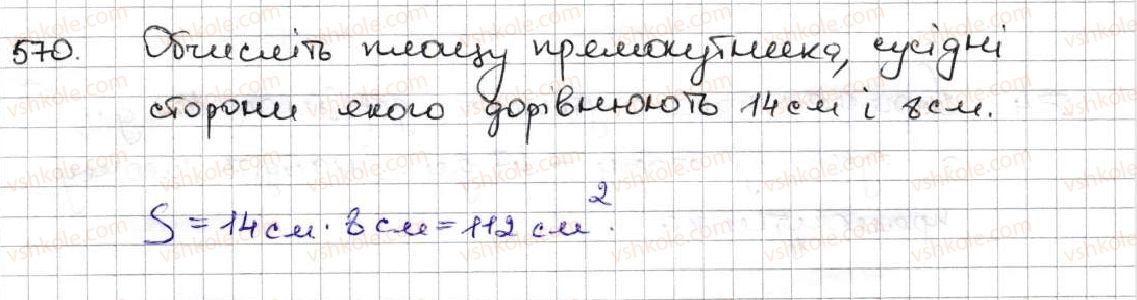 570. Обчисліть площу прямокутника, сусідні
сторони якого дорівнюють 14 см і 8 см.
S = 14 см · 8 см = 112 см².